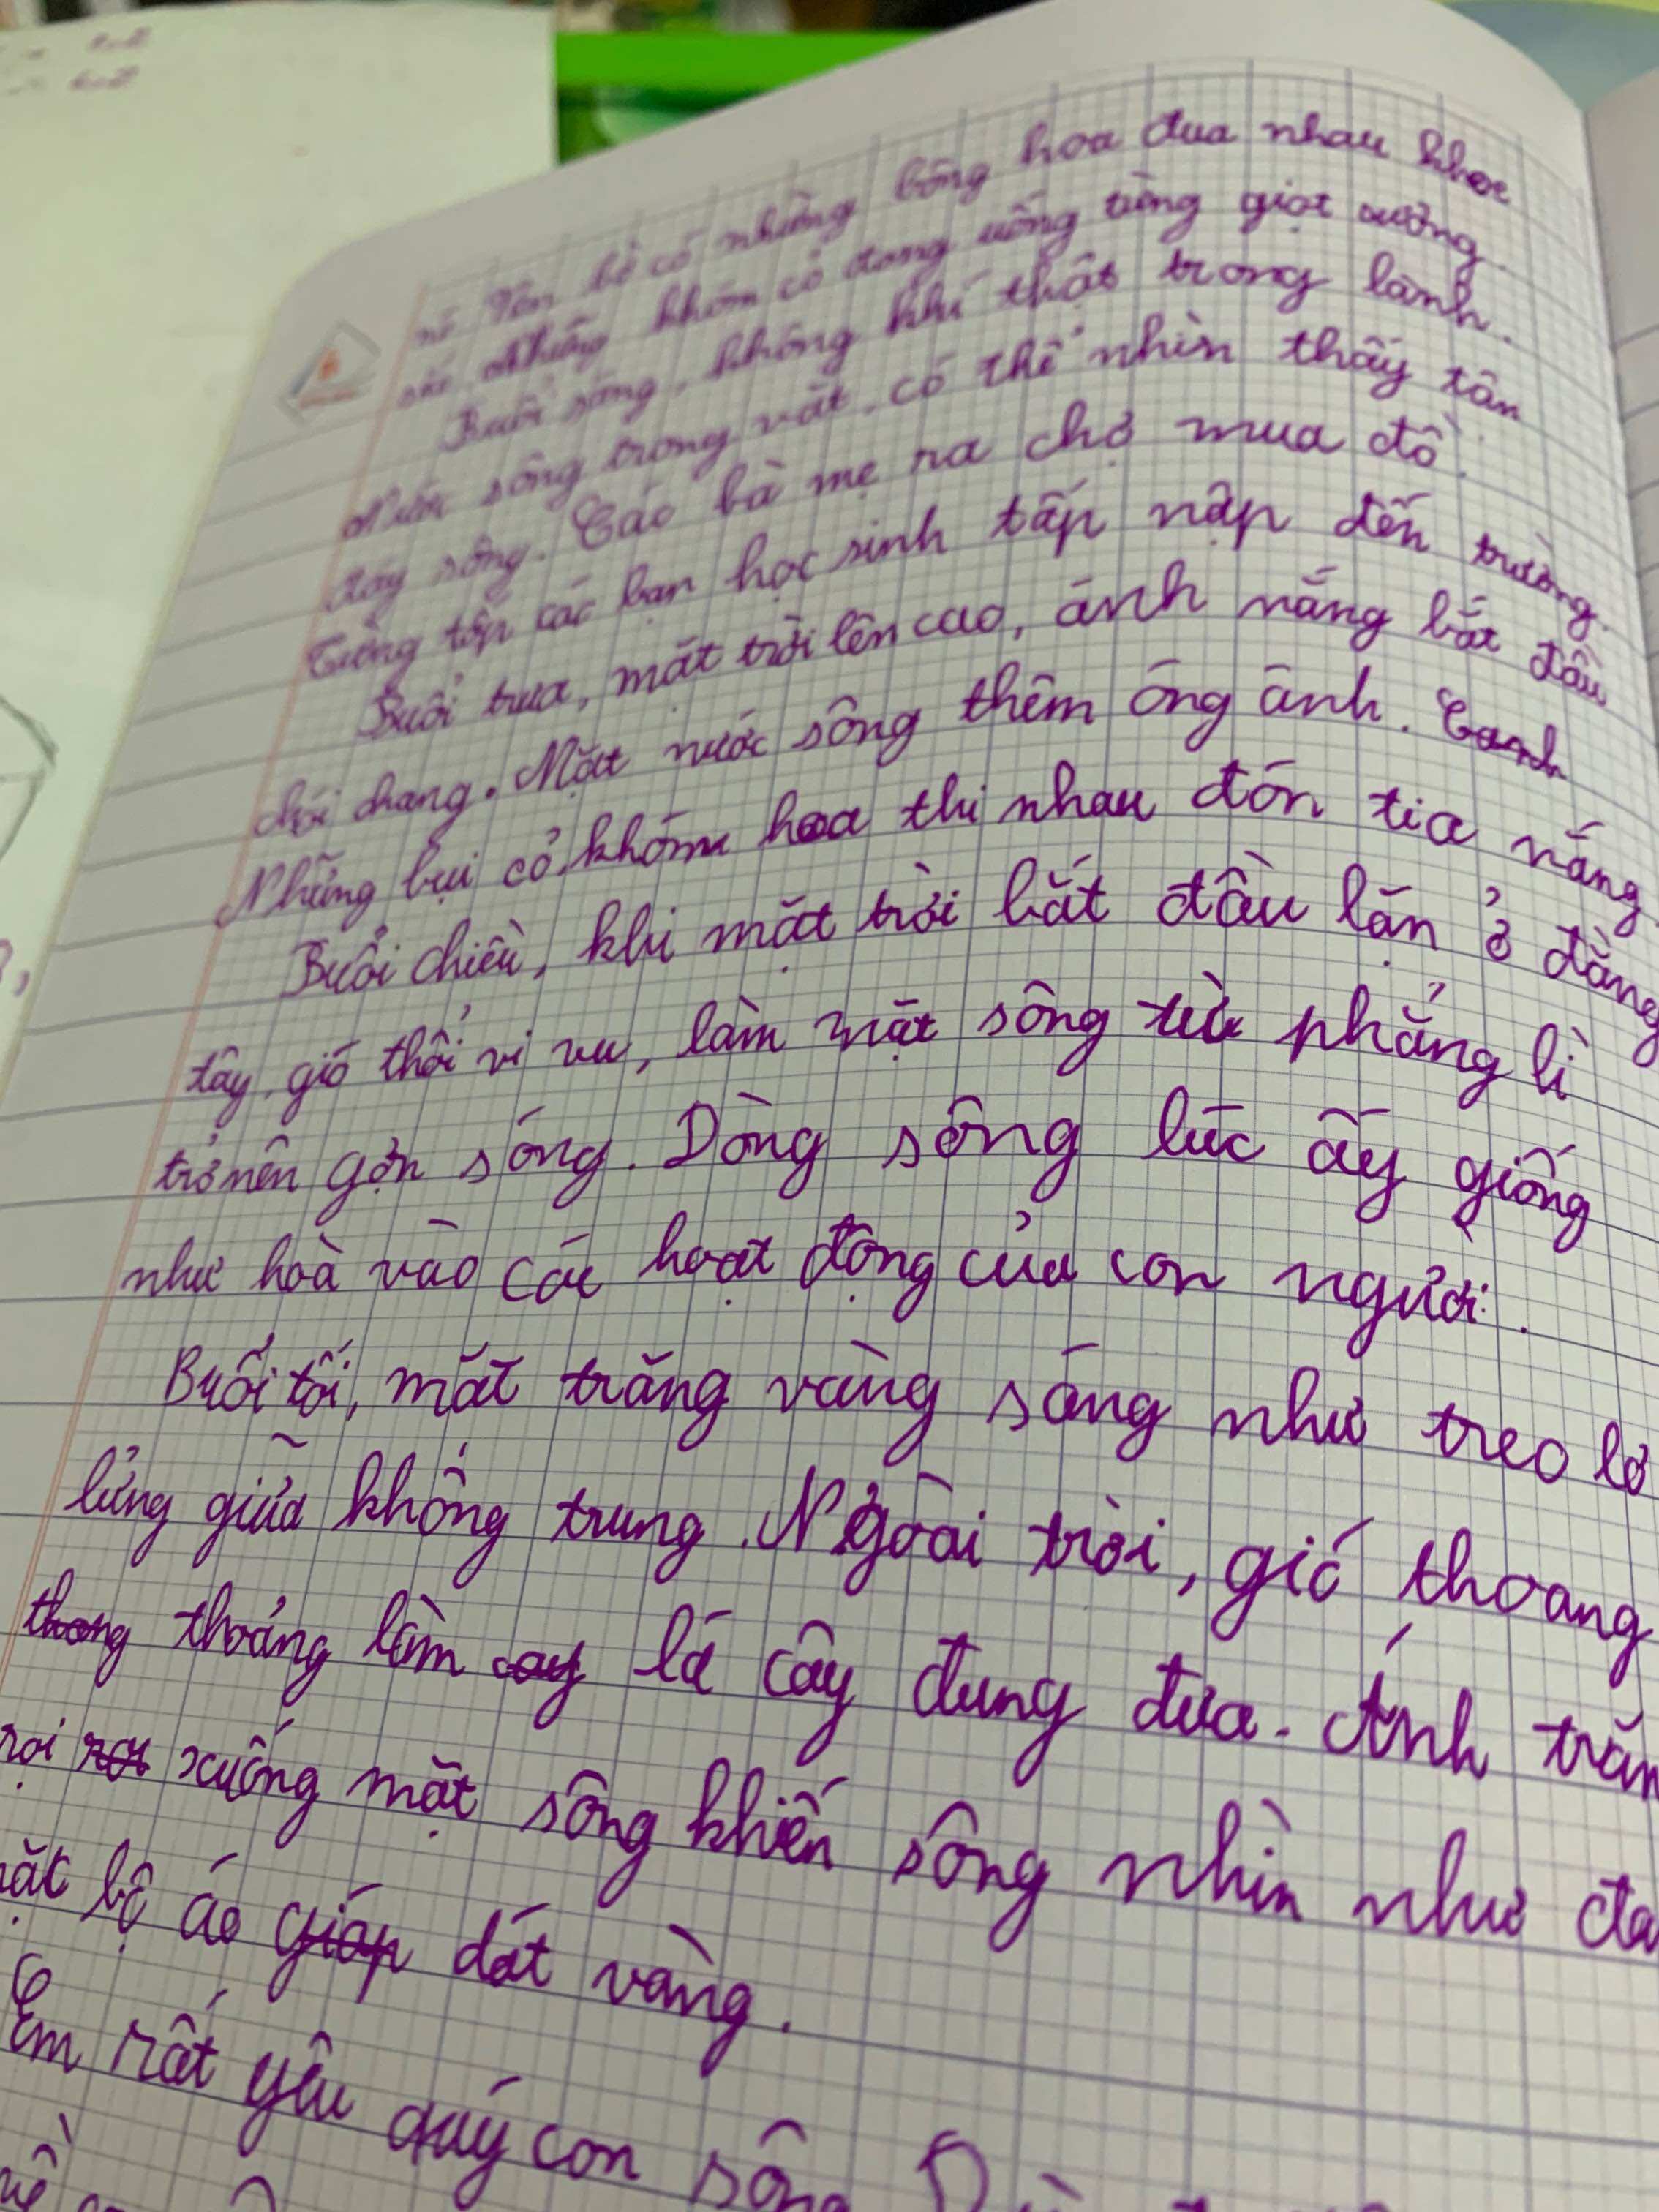 nô. Trên bờ có những bông hoa đua nhau khoe
sắc. Những khóm cỏ đang uống từng giọt sương.
Buổi sáng, không khí thật trong lành.
Nước sông trong vắt, có thể nhìn thấy tận
đáy sông. Các bà mẹ ra chợ mua đồ.
Từng tốp các bạn học sinh tấp nập đến trường.
Buổi trưa, mặt trời lên cao, ánh nắng bắt đầu
chói chang. Mặt nước sông thêm óng ánh.
Những bụi cỏ, khóm hoa thi nhau đón tia nắng
Buổi chiều, khi mặt trời bắt đầu lặn ở đằng
tây, gió thổi vi vu, làm mặt sông từ phẳng lì
trở nên gợn sóng. Dòng sông lúc ấy giống
như hoà vào các hoạt động của con người.
Buổi tối, mặt trăng vàng sáng như treo lơ
lửng giữa không trung. Ngoài trời, gió thoang
thoảng làm lá cây đung đưa. Ánh trăn
rọi xuống mặt sông khiến sông nhìn như đa
mặc bộ áo dát vàng.
Em rất yêu quý con sông